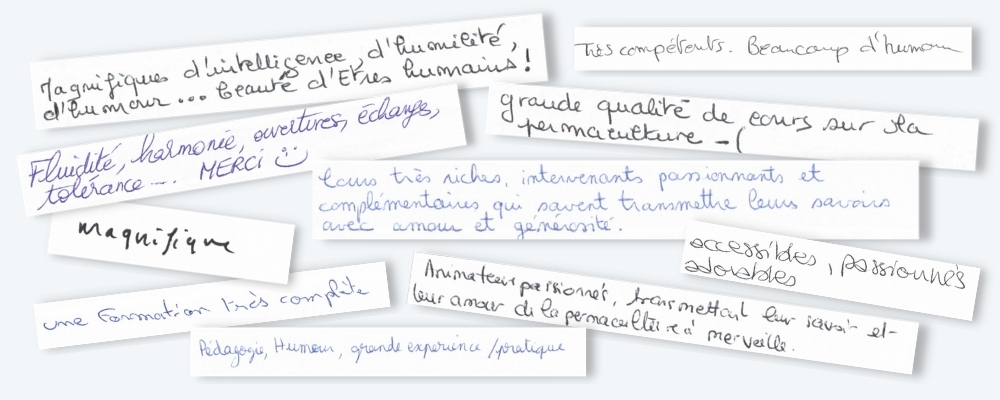 Magnifiques d'intelligence, d'humilité,
d'humour... beauté d'Etres humains!
Très compétents. Beaucoup d'humour
grande qualité de cours sur la
permaculture -(
Fluidité, harmonie, ouvertures, échanges,
tolérance.... MERCi
Cours très riches, intervenants passionnants et
complémentaires qui savent transmettre leurs savoirs
avec amour et générosité.
magnifique
accessibles, passionnés
adorables
Animateurs passionnés, transmettant leur savoir et
leur amour de la permaculture à merveille.
une formation très complète
Pédagogie, Humour, grande expérience /pratique